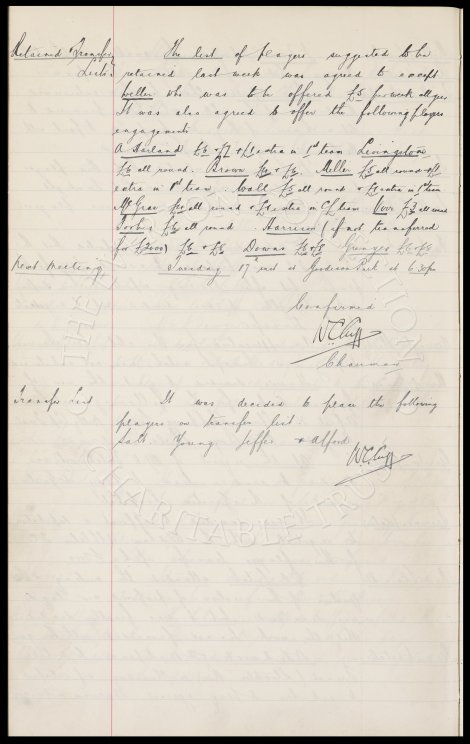 Retained & Transfer The list of players suggested to be
Lists retained last week was agreed to except
Weller who was to be offered £5 per week all year.
It was also agreed to offer the following players
engagement
A Harland £6 & £7 & £1 extra in 1st team Livingstone
£6 all round. Brown £6 & £6. Meller £5 all round & £1
extra in 1st team. Wall £5 all round & £1 extra in 1st team
McGrae all round & extra in team Virr £3 all round
Forbes £6 all round. Harrison (if not transferred
for £2000) £6 & £6 Downs £8 & £8 Grunges
Next Meeting Tuesday 17th inst at Goodison Park at 6.30pm
Confirmed
W.C. Cuff
Chairman
Transfer List It was decided to place the following
players on transfer list:
Salt Young Jeffs & Alford
W.C. Cuff
THE
CHARITABLE TRUST